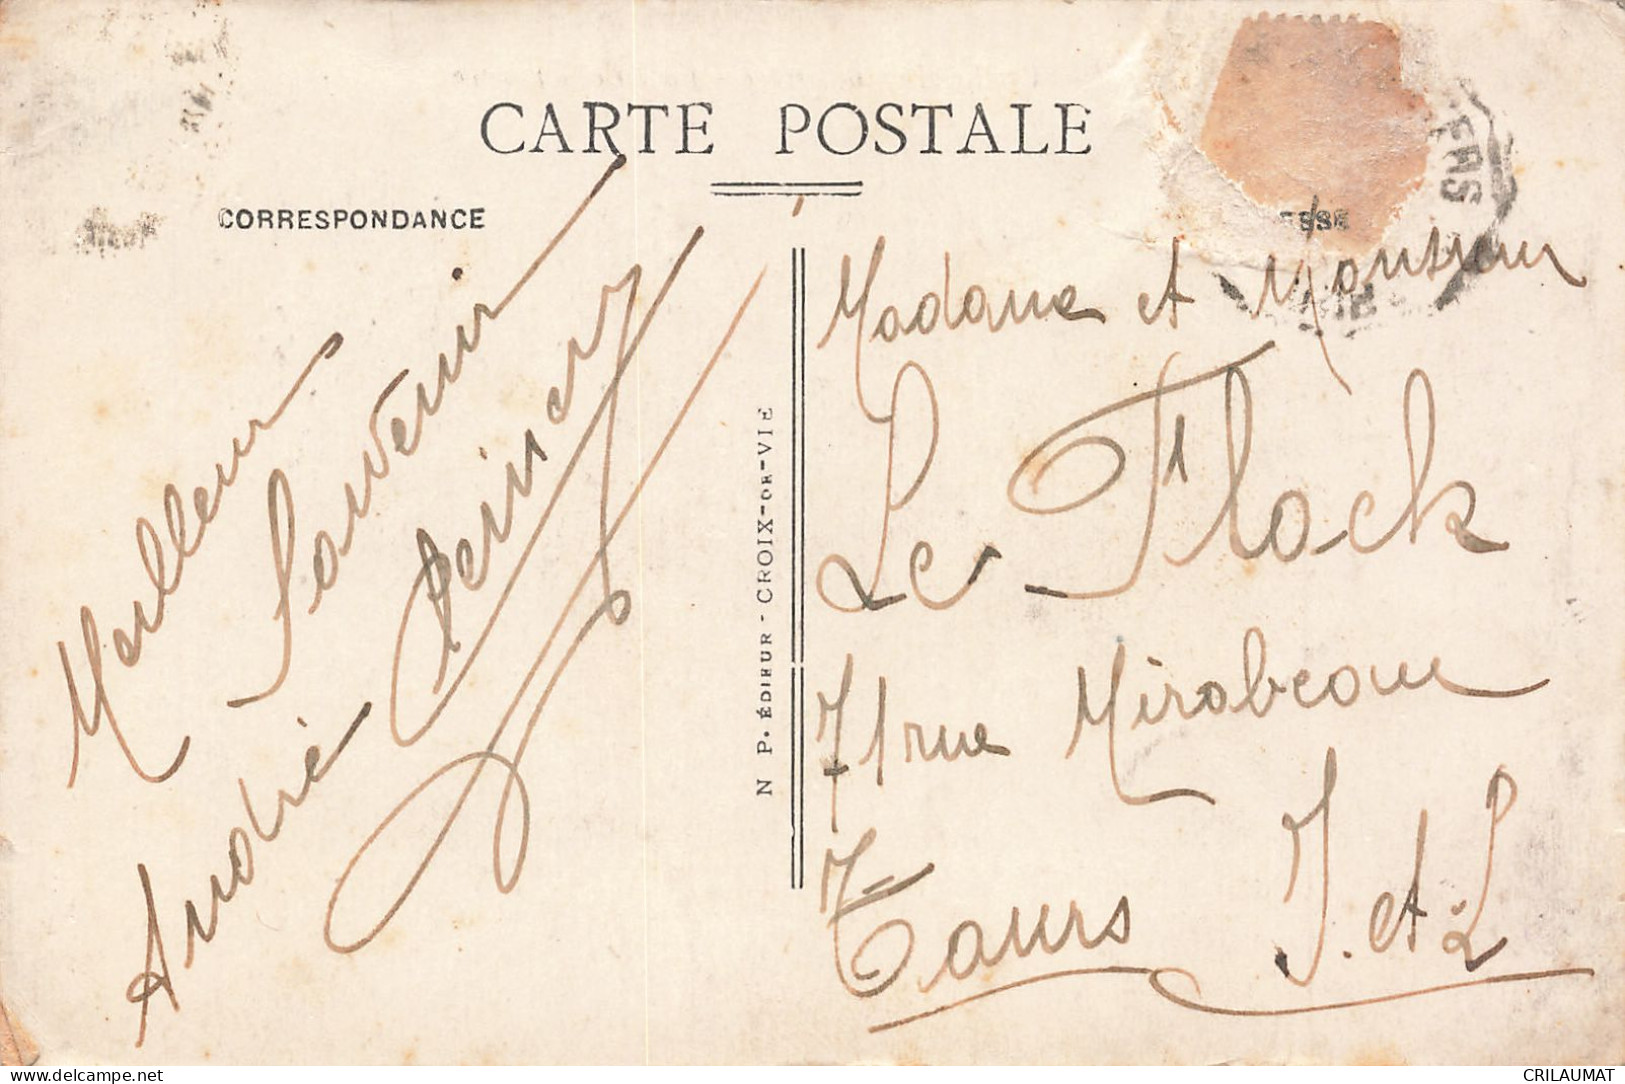 CARTE POSTALE
CORRESPONDANCE
Meilleur
Souvenir
André
N P. ÉDITEUR - CROIX-DE-VIE
Madame et Monsieur
Le Flock
71 rue Mirabeau
Tours I. et L.
CRILAUMAT